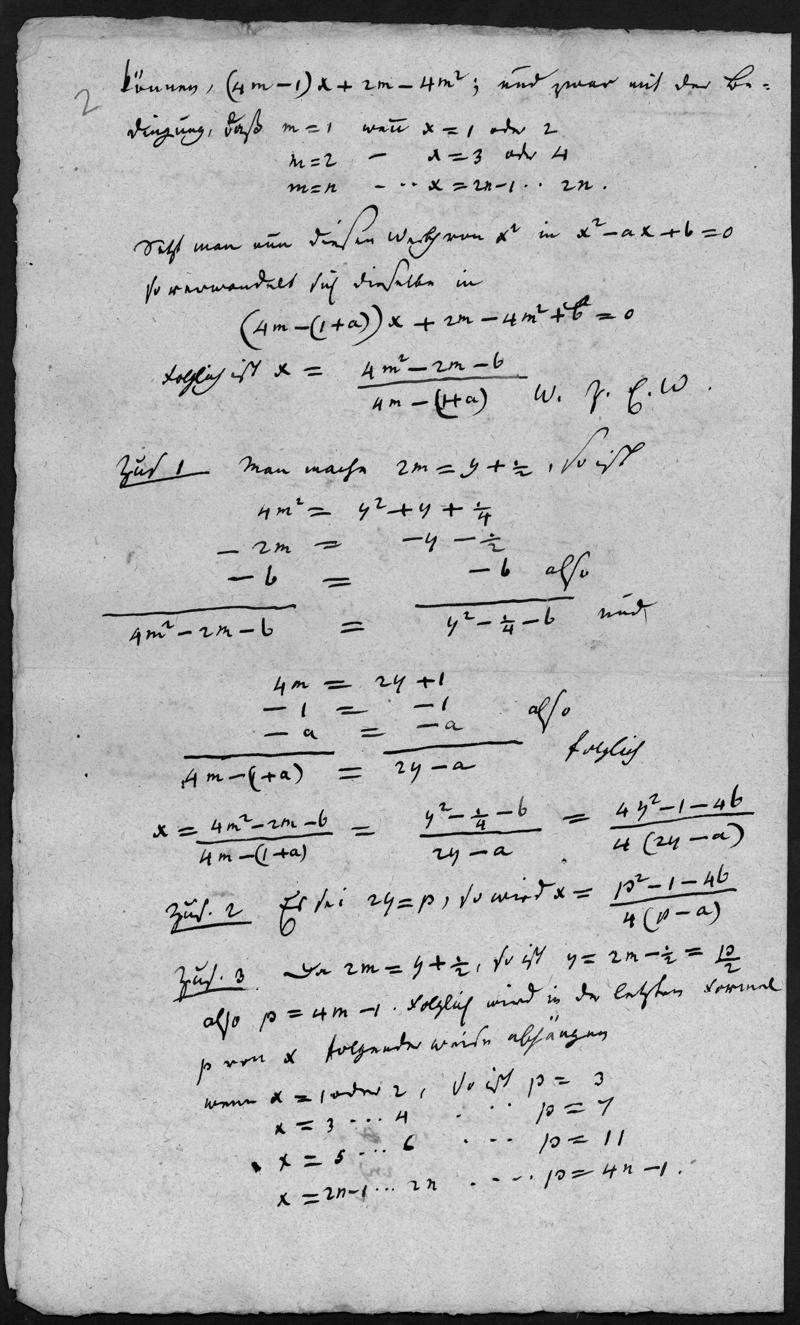 2
können, (4m-1)x + 2m - 4m²; und zwar mit der Be=
dingung, daß m=1 wenn x=1 oder 2
m=2 — x=3 oder 4
m=n - ·· x=2n-1 ·· 2n.
Setzt man nun diesen Werth von x² in x²-ax+b=0
so verwandelt sich dieselbe in
(4m-(1+a))x + 2m - 4m² + b = 0
folglich ist x = (4m²-2m-b)/(4m-(1+a)) W. Z. E. W.
Zus. 1 Man mache 2m = y + ½, so ist
4m² = y² + y + ¼
- 2m = -y - ½
- b = - b also
4m² - 2m - b = y² - ¼ - b und
4m = 2y + 1
- 1 = - 1
- a = - a also
4m-(1+a) = 2y - a folglich
x = (4m²-2m-b)/(4m-(1+a)) = (y²-¼-b)/(2y-a) = (4y²-1-4b)/(4(2y-a))
Zus. 2 Es sei 2y=p, so wird x = (p²-1-4b)/(4(p-a))
Zus. 3. Da 2m = y+½, so ist y = 2m-½ = p/2
also p = 4m-1. folglich wird in der letzten Formel
p von x folgender weise abhängen
wenn x = 1 oder 2, so ist p = 3
x = 3 ··· 4 · ·· p = 7
x = 5 ··· 6 ···· p = 11
x = 2n-1 ··· 2n ···· p = 4n-1.